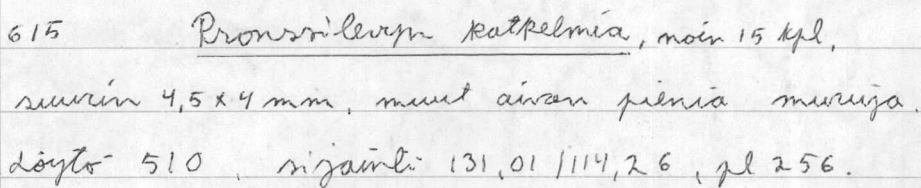 615 Pronssilevyn katkelmia, noin 15 kpl,
suurin 4,5 x 4 mm, muut aivan pieniä muruja.
Löytö 510, sijainti 131,01/114,26, pl 256.